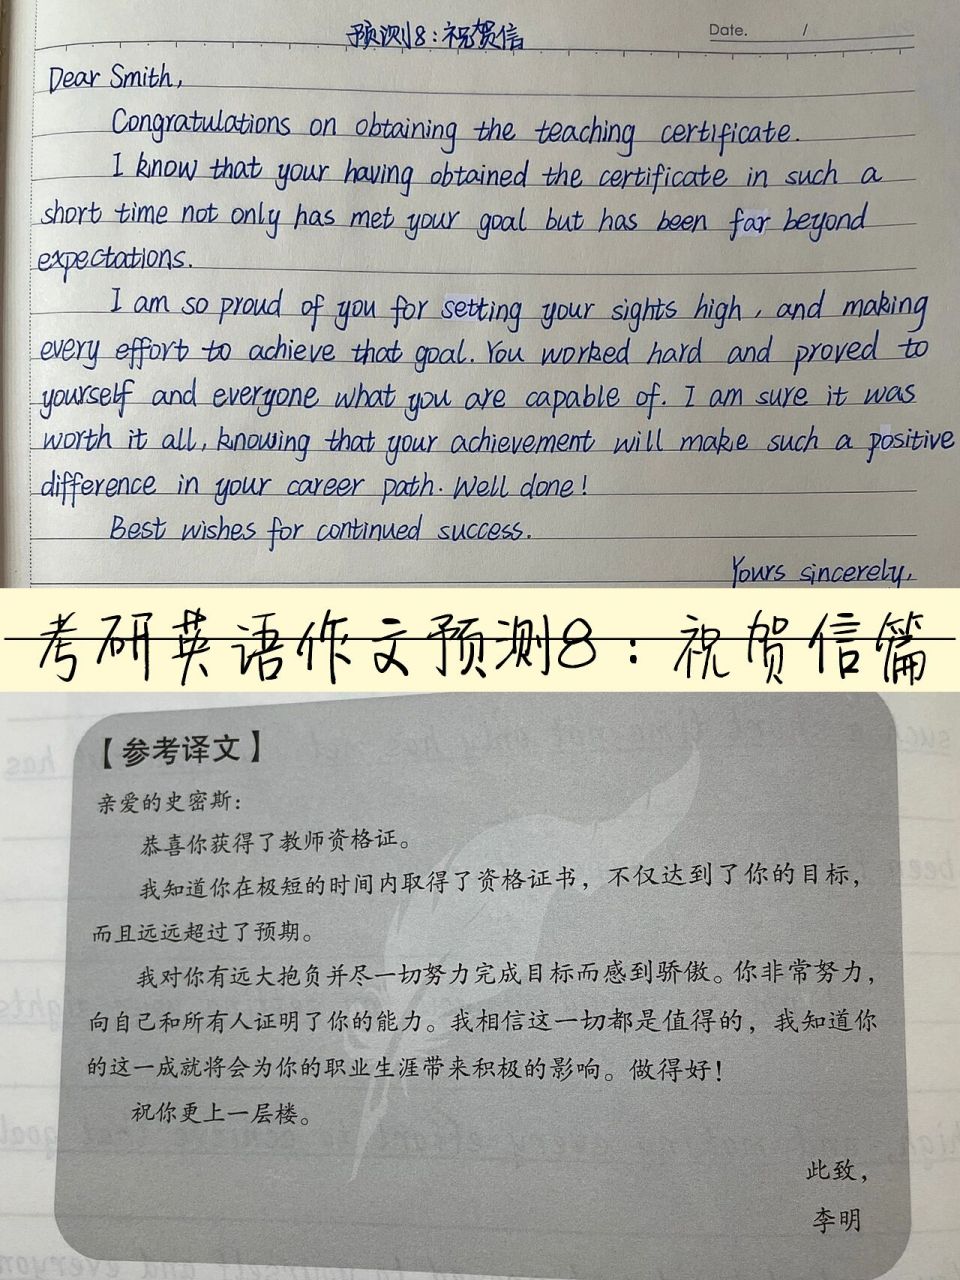 预测8:祝贺信
Date. /
Dear Smith,
Congratulations on obtaining the teaching certificate.
I know that your having obtained the certificate in such a
short time not only has met your goal but has been far beyond
expectations.
I am so proud of you for setting your sights high, and making
every effort to achieve that goal. You worked hard and proved to
yourself and everyone what you are capable of. I am sure it was
worth it all, knowing that your achievement will make such a positive
difference in your career path. Well done!
Best wishes for continued success.
Yours sincerely,
考研英语作文预测8:祝贺信篇
【参考译文】
亲爱的史密斯:
恭喜你获得了教师资格证。
我知道你在极短的时间内取得了资格证书,不仅达到了你的目标,
而且远远超过了预期。
我对你有远大抱负并尽一切努力完成目标而感到骄傲。你非常努力,
向自己和所有人证明了你的能力。我相信这一切都是值得的,我知道你
的这一成就将会为你的职业生涯带来积极的影响。做得好!
祝你更上一层楼。
此致,
李明